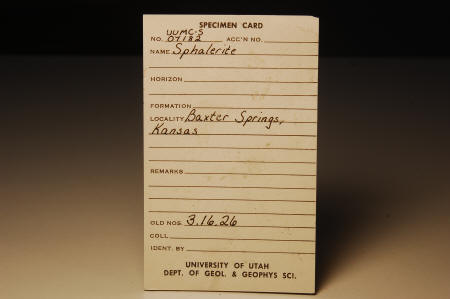 SPECIMEN CARD
UUMC-S
NO. 07182 ACC'N NO.
NAME Sphalerite
HORIZON
FORMATION
LOCALITY Baxter Springs,
Kansas
REMARKS
OLD NOS. 3.16.26
COLL.
IDENT. BY
UNIVERSITY OF UTAH
DEPT. OF GEOL. & GEOPHYS SCI.